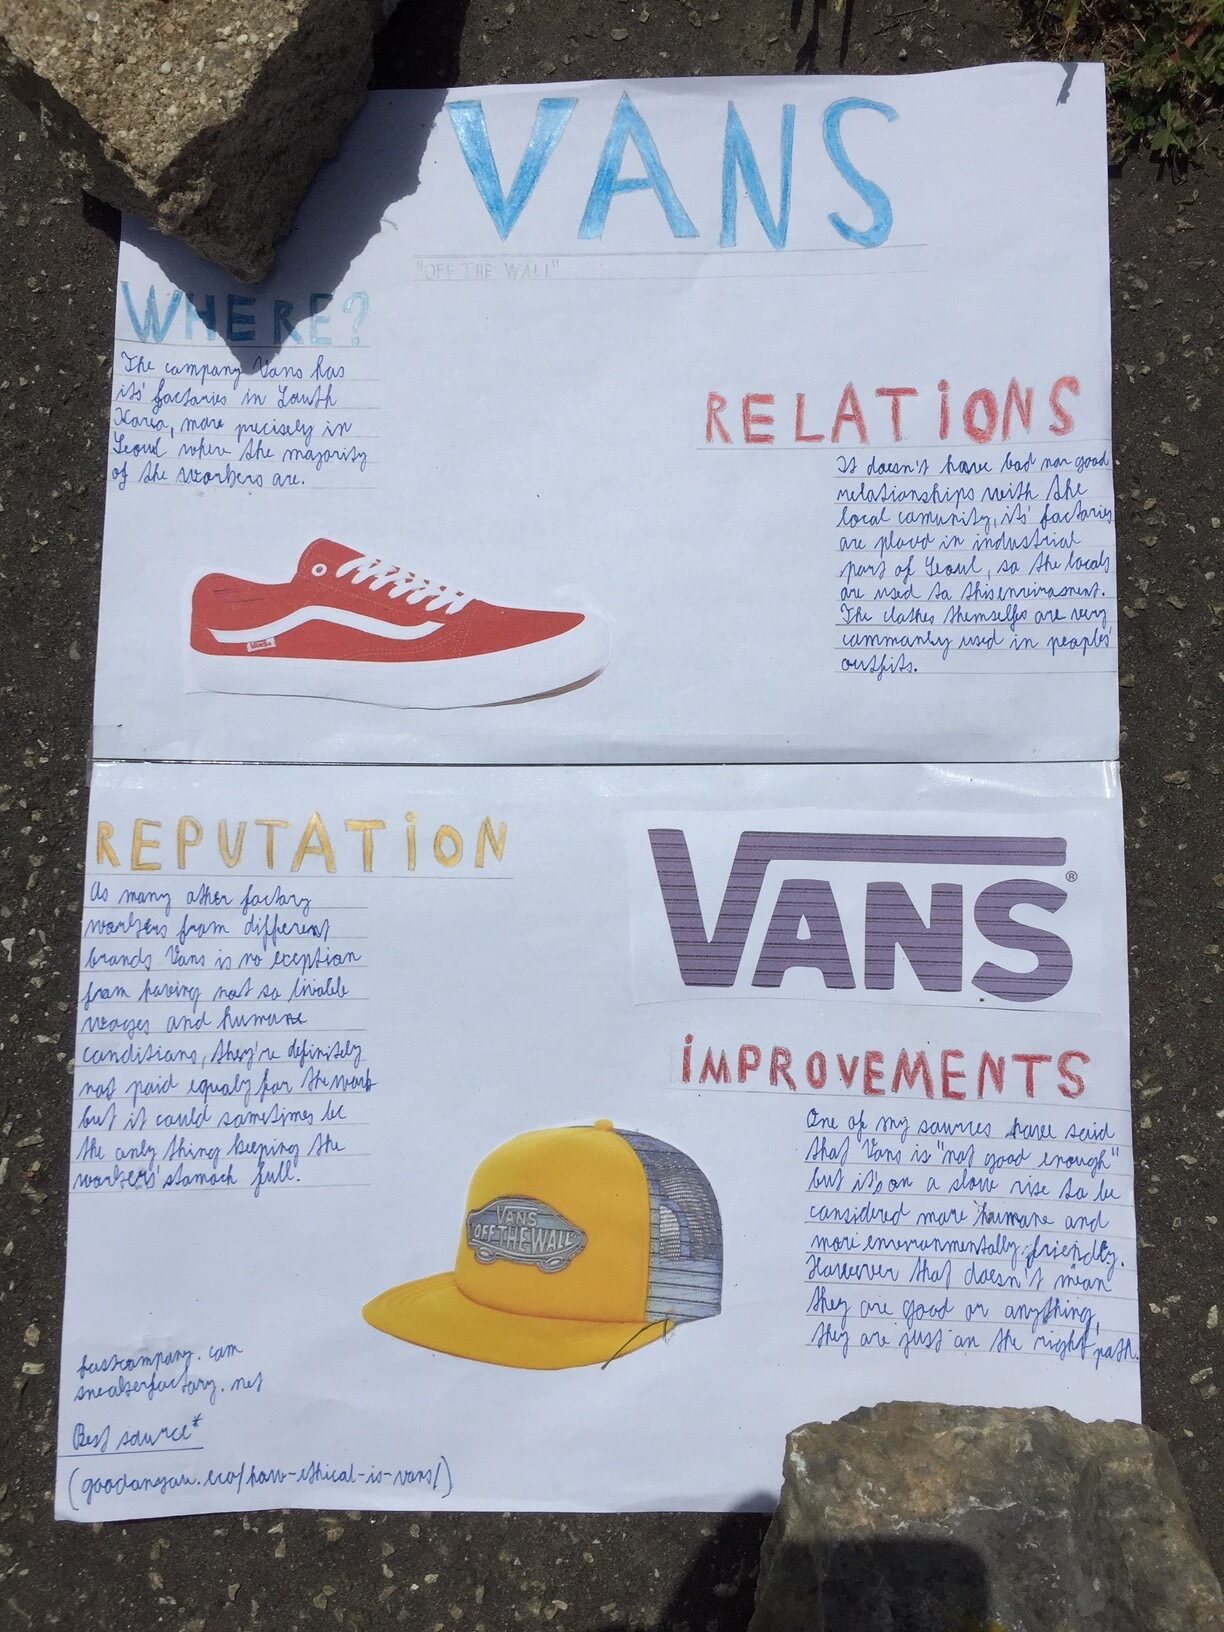 VANS
"OFF THE WALL"
WHERE?
The company Vans has
its' factories in South
Korea, more precisely in
Seoul where the majority
of the workers are.
RELATIONS
It doesn't have bad nor good
relationships with the
local camunity, its' factories
are placed in industrial
part of Seoul, so the locals
are used to this enviroment.
The clothes themselfes are very
commonly used in peoples'
outfits.
VANS
REPUTATION
As many other factory
workers from different
brands Vans is no eception
from having not so livable
wages and humane
conditions, they're definitely
not paid equaly for the work
but it could sometimes be
the only thing keeping the
workers' stomach full.
VANS®
IMPROVEMENTS
One of my sources have said
that Vans is "not good enough"
but it's on a slow rise to be
considered more humane and
more environmentally friendly.
However that doesn't mean
they are good or anything,
they are just on the right path.
VANS
"OFF THE WALL"
fastcompany.com
sneakerfactory.net
Best source*
(goodonyou.eco/how-ethical-is-vans/)